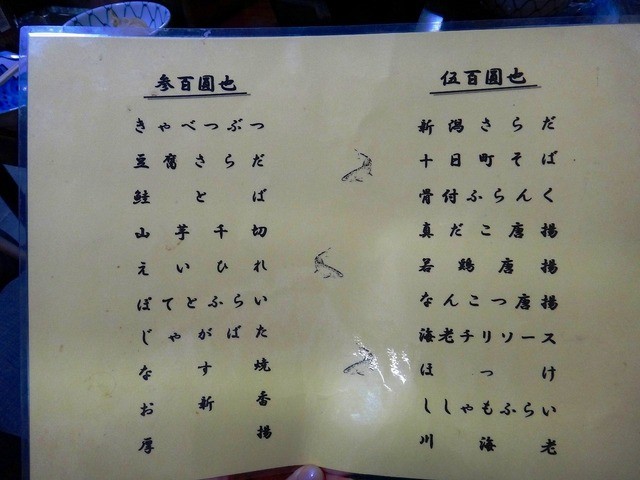 参百圓也
きゃべつぶつ
豆腐さらだ
鮭とば
山芋千切
えいひれ
ぽてとふらい
じゃがばた
なす焼
お新香
厚揚
伍百圓也
新潟さらだ
十日町そば
骨付ふらんく
真だこ唐揚
若鶏唐揚
なんこつ唐揚
海老チリソース
ほっけ
ししゃもふらい
川海老